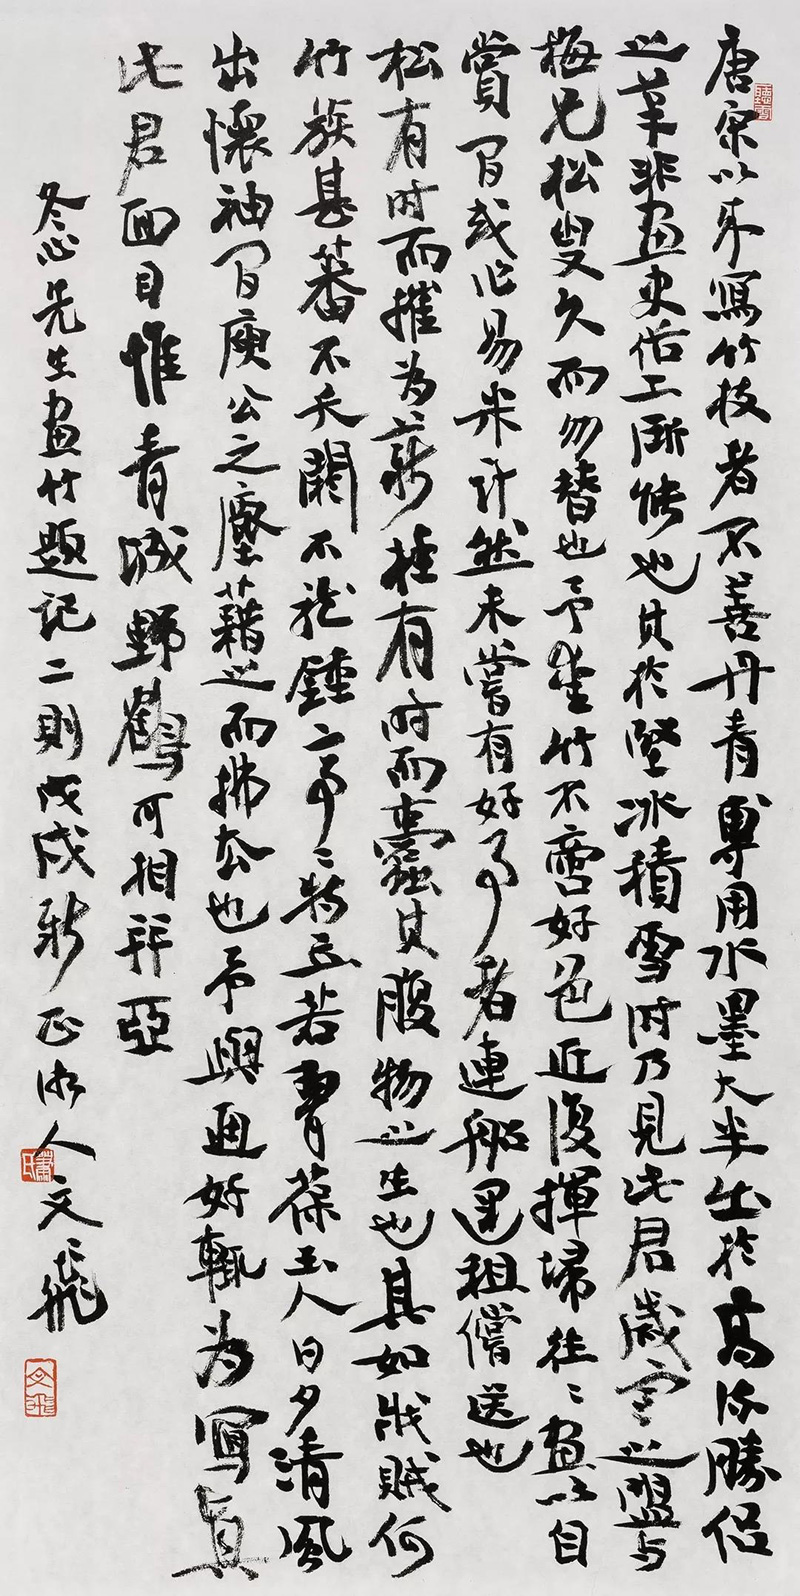 唐宋以來寫竹枝者不善丹青專用水墨大半出於高流勝侶
之筆非画史俗工所能也其於堅冰積雪時乃見此君歲寒之盟与
梅兄松叟久而勿替也予畫竹不啻好色近復揮埽往往画以自
賞間或作易米計然未嘗有好事者連船運租償送也
松有時而摧为薪桂有時而蠹其腹物之生也其如戕賊何
竹族甚蕃不夭閼不龍鍾亭亭特立若青葆玉人日夕清風
出懷袖間庾公之塵藉之而拂去也予興適好輒为寫真
此君面目惟青城野鶴可相并亞
冬心先生画竹題記二則戊戌新正湖人文飛
聽雪
蕭氏
文飛